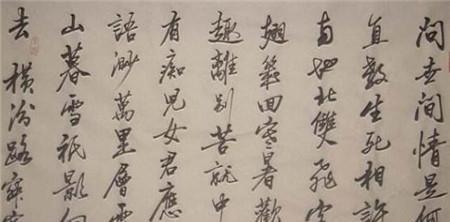 問世間情是何
直教生死相許
南地北雙飛客
翅幾回寒暑歡
趣離別苦就中
有痴兒女君應
語渺萬里層雲
山暮雪祇影向
去橫汾路寂